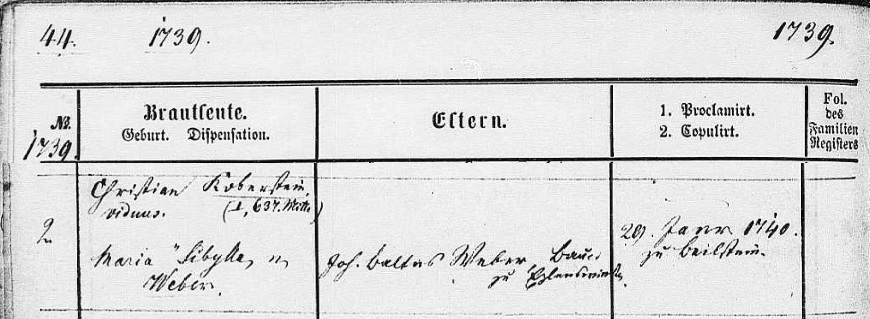 44. 1739. 1739.
No. Brautleute. Eltern. 1. Proclamirt. Fol.
Geburt. Dispensation. 2. Copulirt. des
Familien
Registers
1739.
Christian Koberstein,
viduus. (I, 637.
2 29. Janr 1740.
Maria Sibylla, Joh. Baltas Weber, Bauer zu Beilstein.
Weber. zu